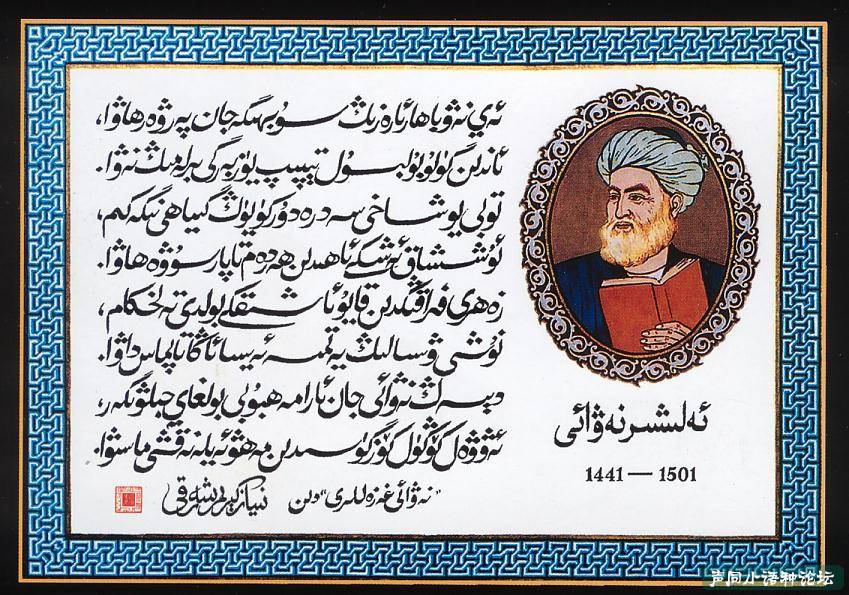 ئەي نەۋباھار ئارەزىڭ سۇبھىگە جان پەرۋەر ھاۋا،
ئاندىن گۈلۈ بۇلبۇل تېپىپ يۈز بەرگى بىرلە مىڭ نەۋا.
تۇبىيۇ شاخى سەدرە دۇر كويۈڭ گىياھى نىگەكىم،
ئۇششاق ئەشكى ئاھىدىن ھەردەم تاپار سۇۋۇ ھاۋا.
زەھرى فەراقىڭدىن قايۇ ئاشىقكى بولدى تەلخكام،
نۇشى ۋىسالىڭ يەتمسە ئەيسا ئاڭا تاپماس داۋا.
دېسەڭ نەۋائى جان ئارا مەھبۇبى بولغاي جىلۋىگەر،
ئەۋۋەل كۆڭۈل كۆزگۈسىدىن مەھۋ ئەيلە نەقشى ماسىۋا.
“نەۋائى غەزەللىرى” دىن
نىياز كېرىمى شەرقى
ئەلىشىر نەۋائى
1441 — 1501
声同小语种论坛